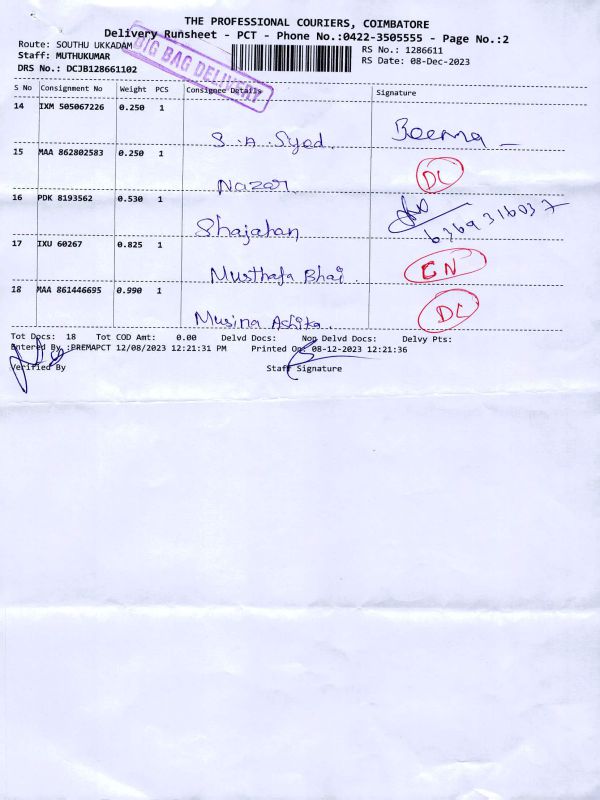 THE PROFESSIONAL COURIERS, COIMBATORE
Delivery Runsheet - PCT - Phone No.:0422-3505555 - Page No.:2
Route: SOUTHU UKKADAM
RS No.: 1286611
Staff: MUTHUKUMAR
RS Date: 08-Dec-2023
DRS No.: DCJB128661102
BIG BAG DELIVERY
S No Consignment No Weight PCS Consignee Details Signature
14 IXM 505067226 0.250 1
S.A.Syed. Beema
15 MAA 862802583 0.250 1
Nazar. DL
16 PDK 8193562 0.530 1
Shajahan 6369316037
17 IXU 60267 0.825 1
Musthafa Bhai CN
18 MAA 861446695 0.990 1
Musina Ashika. DL
Tot Docs: 18 Tot COD Amt: 0.00 Delvd Docs: Non Delvd Docs: Delvy Pts:
Entered By :PREMAPCT 12/08/2023 12:21:31 PM Printed On: 08-12-2023 12:21:36
Verified By Staff Signature